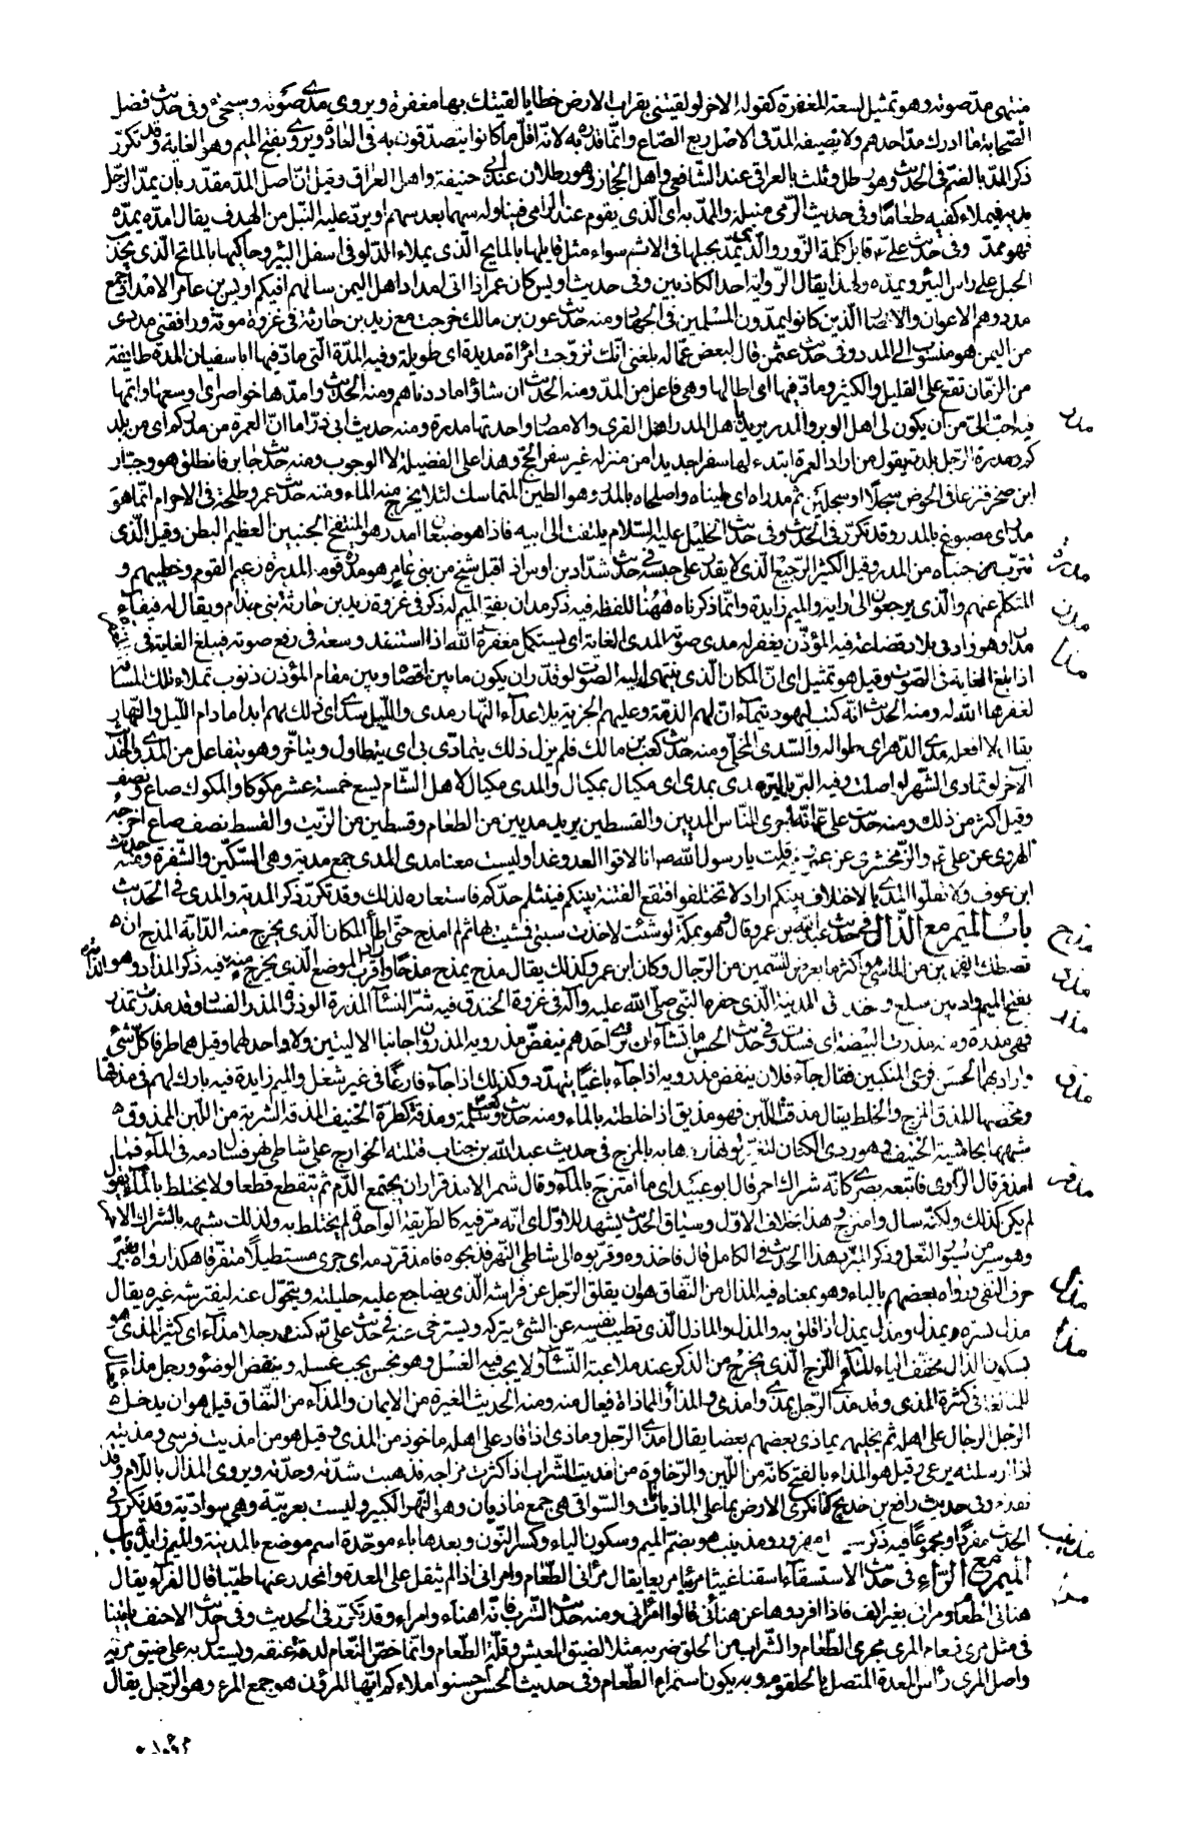 منتهى مدّ صوته وهو تمثيل لسعة المغفرة كقوله الاخر لو لقيتنى بقراب الارض خطايا لقيتك بها مغفرة ويروى مدى صوته وسيجئ وفى حديث فضل
الصحابة ما ادرك مدّ احدهم ولا نصيفه المدّ فى الاصل ربع الصّاع وانّما قدّره به لانّه اقلّ ما كانوا يتصدّقون به فى العادة ويروى بفتح الميم وهو الغاية وقد تكرّر
ذكر المدّ بالضمّ فى الحديث وهو رطل وثلث بالعراقى عند الشافعى واهل الحجاز وهو رطلان عند ابى حنيفة واهل العراق وقيل انّ اصل المدّ مقدّر بان يمدّ الرّجل
يديه فيملاء كفيه طعاما وفى حديث الرّمى منبله والممدّ به اى الّذى يقوم عند الرّامى فيناوله سهما بعد سهم او يردّ عليه النبل من الهدف يقال امدّه يمدّه
فهو ممدّ وفى حديث علىّ قائل كلمة الزّور والّذى يمدّ بحبلها فى الاثم سواء مثل قائلها بالمايح الّذى يملاء الدّلو فى اسفل البئر وحاكيها بالماتح الّذى يجذب
الحبل على راس البئر ويمدّه ولهذا يقال الرّواية احد الكاذبين وفى حديث اويس كان عمر اذا اتى امداد اهل اليمن سالهم افيكم اويس بن عامر الامداد جمع
مدد وهم الاعوان والانصار الّذين كانوا يمدّون المسلمين فى الجهاد ومنه حديث عون بن مالك خرجت مع زيد بن حارثة فى غزوة موتة ورافقنى مددى
من اليمن هو منسوب الى المدد وفى حديث عثمن قال لبعض عمّاله بلغنى انّك تزوّجت امراة مديدة اى طويلة وفيه المدّة الّتى مادّ فيها ابا سفيان المدّة طائفة
من الزّمان تقع على القليل والكثير ومادّ فيها اى اطالها وهى فاعل من المدّ ومنه الحديث ان شاؤا ماددناهم ومنه الحديث وامدّها خواصر اى اوسعها واتمّها
مدر
فيه احبّ الىّ من ان يكون لى اهل الوبر والمدر يريد باهل المدر اهل القرى والامصار واحدتها مدرة ومنه حديث ابى ذرّ اما انّ العمرة من مدركم اى من بلدكم
ومدرة الرّجل بلدته يقول من اراد العمرة ابتدء لها سفرا جديدا من منزله غير سفر الحجّ وهذا على الفضيلة لا الوجوب ومنه حديث جابر فانطلق هو وجبّار
ابن صخر فنزعا فى الحوض سجلا او سجلين ثم مدراه اى طيناه واصلحاه بالمدر وهو الطين المتماسك لئلا يخرج منه الماء ومنه حديث عمر وطلحة فى الاحرام انّما هو
مدر اى مصبوغ بالمدر وقد تكرّر فى الحديث وفى حديث الخليل عليه السّلام يلتفت الى ابيه فاذا هو ضبعان امدر هو المنتفخ الجنبين العظيم البطن وقيل الّذى
مدره
تترّب جنباه من المدر وقيل الكثير الرّجيع الّذى لا يقدر على حبسه فى حديث شدّاد بن اوس اذ اقبل شيخ من بنى عامر هو مدره قومه المدره زعيم القوم وخطيبهم و
مدن
المتكلم عنهم والّذى يرجعون الى رايه والميم زايدة وانّما ذكرناه ههنا للفظه فيه ذكر مدان بفتح الميم له ذكر فى غزوة زيد بن حارثة بنى جذام ويقال له فيفاء
مدا
مدان وهو واد فى بلاد قضاعة فيه المؤذّن يغفر له مدى صوته المدى الغاية اى يستكمل مغفرة الله اذا استنفد وسعه فى رفع صوته فيبلغ الغاية فى المغفرة
اذا بلغ الغاية فى الصّوت وقيل هو تمثيل اى انّ المكان الّذى ينتهى اليه الصّوت لو قدّر ان يكون ما بين اقصاه وبين مقام المؤذن ذنوب تملاء تلك المسافة
لغفرها الله له ومنه الحديث انّه كتب ليهود تيماء انّ لهم الذمّة وعليهم الجزية بلا عداء النّهار مدى واللّيل سدى اى ذلك لهم ابدا ما دام الليل والنّهار
يقال لا افعله مدى الدّهر اى طواله والسّدى المخلّى ومنه حديث كعب بن مالك فلم يزل ذلك يتمادى بى اى يتطاول ويتاخّر وهو يتفاعل من المدى والحديث
الآخر لو تمادى الشّهر لواصلت وفيه البرّ بالبرّ مدى بمدى اى مكيال بمكيال والمدى مكيال لاهل الشّام يسع خمسة عشر مكّوكا والمكوك صاع ونصف
وقيل اكثر من ذلك ومنه حديث علىّ انّه اجرى للنّاس المديين والقسطين يريد مديين من الطّعام وقسطين من الزّيت والقسط نصف صاع اخرجه
الهروى عن علىّ والزّمخشرى عن عمر فيه قلت يا رسول الله ص انا لاقوا العدوّ غدا وليست معنا مدى المدى جمع مدية وهى السّكّين والشّفرة ومنه حديث
ابن عوف ولا تفلّوا المدى بالاختلاف بينكم اراد لا تختلفوا فتقع الفتنة بينكم فينثلم حدّكم فاستعاره لذلك وقد تكرّر ذكر المدية والمدى فى الحديث
مذح
باب الميم مع الذّال فى حديث عبد الله بن عمرو قال وهو بمكّة لو شئت لاخذت سبتى فمشيت بها ثم لم امذح حتّى اطأ المكان الّذى يخرج منه الدّابّة المذح ان
مذد
تصطك الفخذين من الماشى واكثر ما يعرض للسّمين من الرّجال وكان ابن عمرو كذلك يقال مذح يمذح مذحا واراد قرب الموضع الّذى يخرج منه فيه ذكر المذاد وهو
مذر
بفتح الميم واد بين سلع وخندق المدينة الّذى حفره النّبى صلّى الله عليه وآله فى غزوة الخندق فيه شرّ النّساء المذرة الوذرة المذر الفساد وقد مذرت تمذر
فهى مذرة ومنه مذرت البيضة اى فسدت وفى حديث الحسن ما تشاء ان ترى احدهم ينفض مذرويه المذروان جانبا الاليتين ولا واحد لهما وقيل هما طرفا كلّ شئ
مذق
واراد بهما الحسن فرعى المنكبين فقال جاء فلان ينفض مذرويه اذا جاء باغيا يتهدّد وكذلك اذا جاء فارغا فى غير شغل والميم زايدة فيه بارك لهم فى مذقها
ومخضها المذق المزج والخلط يقال مذقت اللّبن فهو مذيق اذا خلطته بالماء ومنه حديث كعب وسلمة ومذقة كطرّة الخنيف المذقة الشربة من اللّبن الممذوق
شبهها بحاشية الخنيف وهو ردى الكتّان لتغيّر لونها وذهابه بالمزج فى حديث عبد الله بن خباب قتلته الخوارج على شاطى نهر فسال دمه فى الماء فما
مذقر
امذقر قال الرّاوى فاتبعه بصرى كانّه شراك احمر قال ابو عبيد اى ما امتزج بالماء وقال شمر الامذقرار ان يجتمع الدّم ثم يتقطع قطعا ولا يختلط بالماء يقول
لم يكن كذلك ولكنّه سال وامتزج وهذا بخلاف الاوّل وسياق الحديث يشهد للاوّل اى انّه مرّ فيه كالطّريقة الواحدة لم يختلط به ولذلك شبهه بالشّراك الاحمر
وهو سير من سيور النّعل وذكر المبرّد هذا الحديث فى الكامل قال فاخذوه وقرّبوه الى شاطى النّهر فذبحوه فامذقرّ دمه اى جرى مستطيلا متفرّقا هكذا رواه بغير
مذل
حرف النّفى ورواه بعضهم بالباء وهو بمعناه فيه المذال من النّفاق هو ان يقلق الرّجل عن فراشه الّذى يضاجع عليه حليلته ويتحوّل عنه ليفترشه غيره يقال
مذا
مذل بسرّه يمذل ومذل يمذل اذا قلق به والمذل والماذل الّذى تطيب نفسه عن الشئ يتركه ويسترخى عنه فى حديث علىّ كنت رجلا مذّاء اى كثير المذى هو
بسكون الذّال مخفف الياء البلل اللّزج الّذى يخرج من الذكر عند ملاعبة النّساء ولا يجب فيه الغسل وهو نجس يجب غسله وينقض الوضوء ورجل مذّاء
للمبالغة فى كثرة المذى وقد مذى الرّجل يمذى وامذى والمذاء المماذاة فعال منه ومنه الحديث الغيرة من الايمان والمذاء من النّفاق قيل هو ان يدخل
الرّجل الرجال على اهله ثم يخليهم يماذى بعضهم بعضا يقال امذى الرّجل وماذى اذا قاد على اهله ماخوذ من المذى وقيل هو من امذيت فرسى ومذيته
اذا ارسلته يرعى وقيل هو المذاء بالفتح كانّه من اللّين والرّخاوة من امذيت الشّراب اذا كثرت مزاجه فذهبت شدّته وحدّته ويروى المذال باللّام وقد
تقدّم وفى حديث رافع بن خديج كنّا نكرى الارض بما على الماذيانات والسّواقى هى جمع ماذيان وهو النّهر الكبير وليست بعربيّة وهى سواديّة وقد تكرّر فى
مذينب
الحديث مفردا ومجموعا فيه ذكر سيل مهزور ومذينب هو بضمّ الميم وسكون الياء وكسر النّون وبعدها باء موحّدة اسم موضع بالمدينة والميم زايدة باب
مرأ
الميم مع الرّاء فى حديث الاستسقاء اسقنا غيثا مريئا مريعا يقال مرأنى الطّعام وامرأنى اذا لم يثقل على المعدة وانحدر عنها طيبا قال الفرّاء يقال
هنأنى الطّعام ومرأنى بغير الف فاذا افردوها عن هنأنى قالوا امرأنى ومنه حديث الشّرب فانّه اهناء وامراء وقد تكرّر فى الحديث وفى حديث الاحنف ياتينا
فى مثل مرئ نعام المرئ مجرى الطّعام والشّراب من الحلق ضربه مثلا لضيق العيش وقلّة الطّعام وانّما خصّ النّعام لدقّة عنقه ويستدلّ به على ضيق مريّه
واصل المرئ رأس المعدة المتصل بالحلقوم وبه يكون استمراء الطّعام وفى حديث الحسن احسنوا املاءكم ايّها المرؤن هو جمع المرء وهو الرّجل يقال